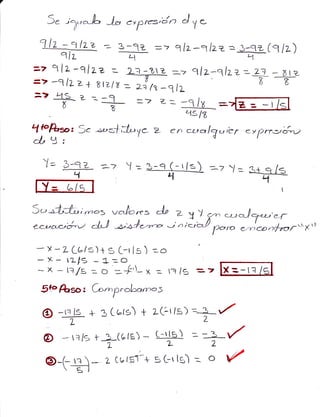 Se iguala la expresión d y c
9/2 - 9/2 z / 9/2 = 3-9z / 4 => 9/2 - 9/2 z = 3-9z / 4 (9/2)
=> 9/2 - 9/2 z = 27-81z / 8 => 9/2 - 9/2 z = 27/8 - 81z/8
=> -9/2 z + 81z/8 = 27/8 - 9/2
=> 45/8 z = -9/8 => z = -9/8 / 45/8 => z = -1/5
4to Paso: Se sustituye z en cualquier expresión
de y :
Y = 3-9z / 4 => Y = 3-9(-1/5) / 4 => Y = 3+9/5 / 4
Y = 6/5
Sustituimos valores de z y Y en cualquier
ecuación del sistema inicial para encontrar "x"
-x - 2(6/5) + 5(-1/5) = 0
-x - 12/5 - 1 = 0
-x - 17/5 = 0 => -x = 17/5 => x = -17/5
5to Paso: Comprobamos
① -17/5 / 2 + 3(6/5) + 2(-1/5) = 3/2 ✓
② -17/5 + 3/2 (6/5) - (-1/5) / 2 = -3/2 ✓
③ -(-17/5) - 2(6/5) + 5(-1/5) = 0 ✓